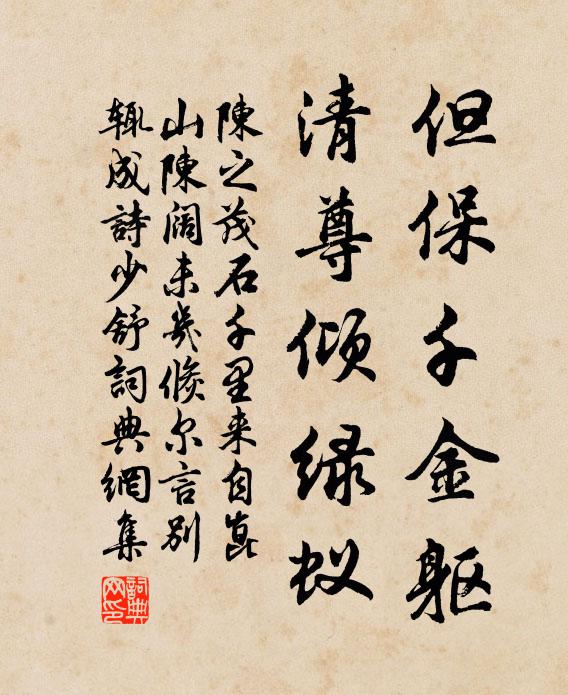 但保千金躯
清尊倾绿蚁
陳之茂石千里来自崑
山陳阔未幾倏尔言别
辄成詩少舒詞典網集
詞典
网印